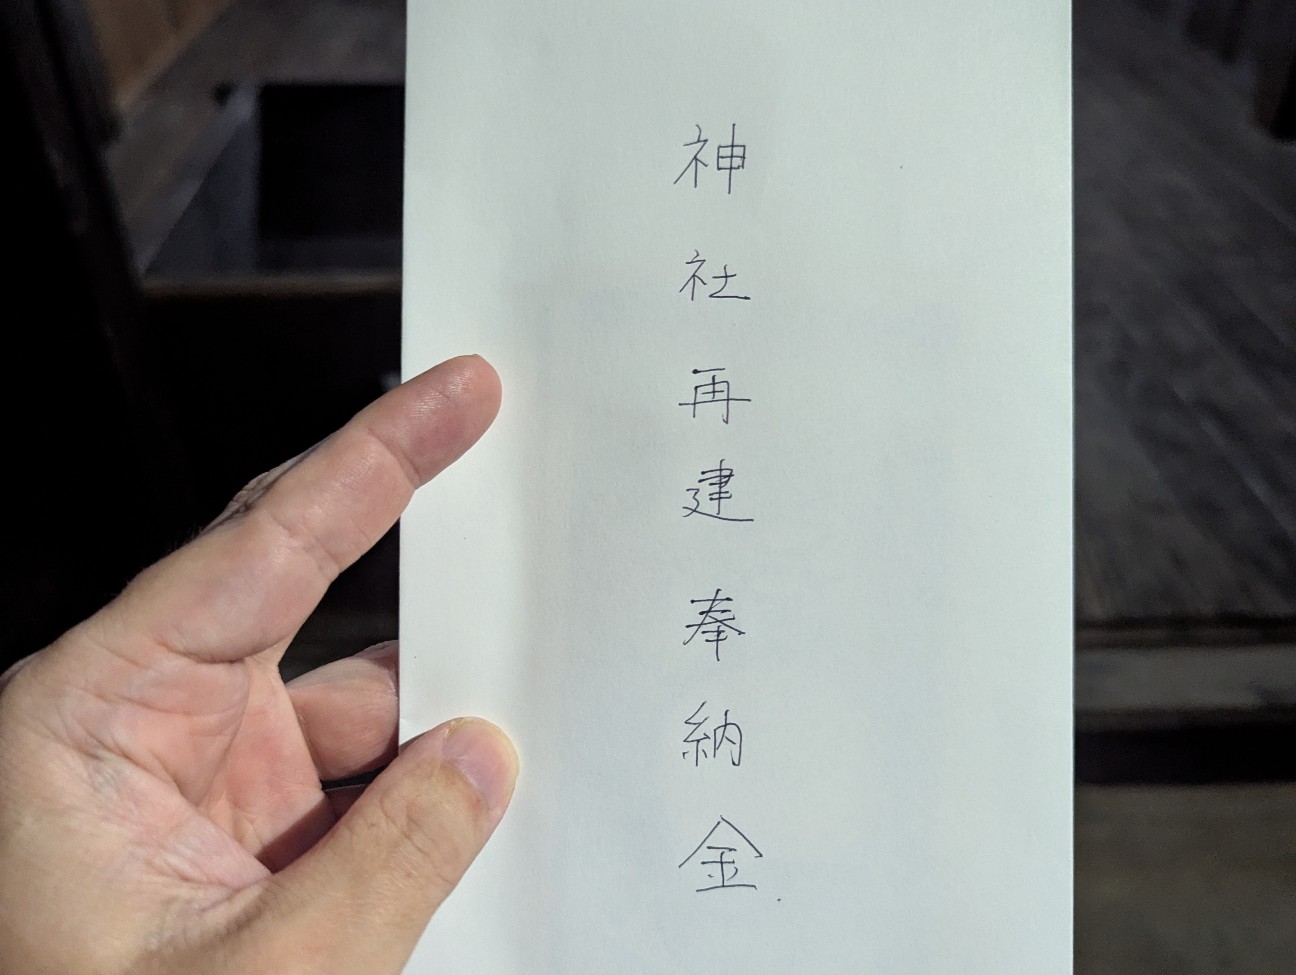 神社再建奉納金